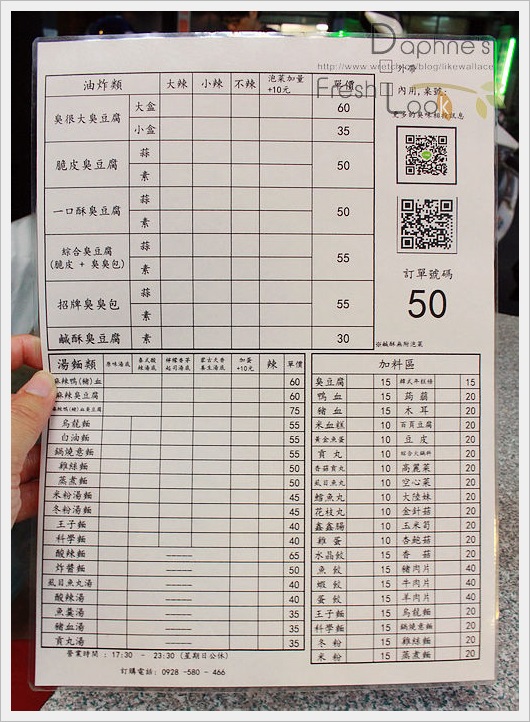 Daphne's
http://www.wretch.cc/blog/likewallace
Fresh Look
外帶
內用,桌號:
更多的臭味相投訊息
油炸類 大辣 小辣 不辣 泡菜加量+10元 單價
臭很大臭豆腐 大盒 60
小盒 35
脆皮臭豆腐 蒜 50
素
一口酥臭豆腐 蒜 50
素
綜合臭豆腐 蒜 55
(脆皮 + 臭臭包) 素
招牌臭臭包 蒜 55
素
鹹酥臭豆腐 30
訂單號碼
50
※鹹酥麻附泡菜
湯麵類 原味湯底 泰式酸辣湯底 檸檬香茅起司湯底 蒙古大香養生湯底 加蛋+10元 辣 單價
麻辣鴨(豬)血 60
麻辣臭豆腐 60
麻辣鴨(豬)血臭豆腐 75
烏龍麵 55
白油麵 50
鍋燒意麵 55
雞絲麵 50
蒸煮麵 50
米粉湯麵 45
冬粉湯麵 45
王子麵 40
科學麵 40
酸辣麵 ----- 65
炸醬麵 ----- 50
虱目魚丸湯 ----- 40
酸辣湯 ----- 40
魚羹湯 ----- 35
豬血湯 ----- 35
貢丸湯 ----- 35
加料區
臭豆腐 15 韓式年糕條 15
鴨血 15 蒟蒻 20
豬血 15 木耳 20
米血糕 10 百頁豆腐 20
黃金魚蛋 10 豆皮 20
貢丸 10 綜合火鍋料 20
香菇貢丸 10 高麗菜 20
虱目魚丸 10 空心菜 20
鱈魚丸 10 大陸妹 20
花枝丸 10 金針菇 20
鑫鑫腸 10 玉米筍 20
雞蛋 10 杏鮑菇 20
水晶餃 15 香菇 20
魚餃 15 豬肉片 40
蝦餃 15 牛肉片 40
蛋餃 15 羊肉片 40
王子麵 15 烏龍麵 20
科學麵 15 鍋燒意麵 20
冬粉 15 雞絲麵 20
米粉 15 蒸煮麵 20
營業時間:17:30 - 23:30(星期日公休)
訂購電話:0928-580-466